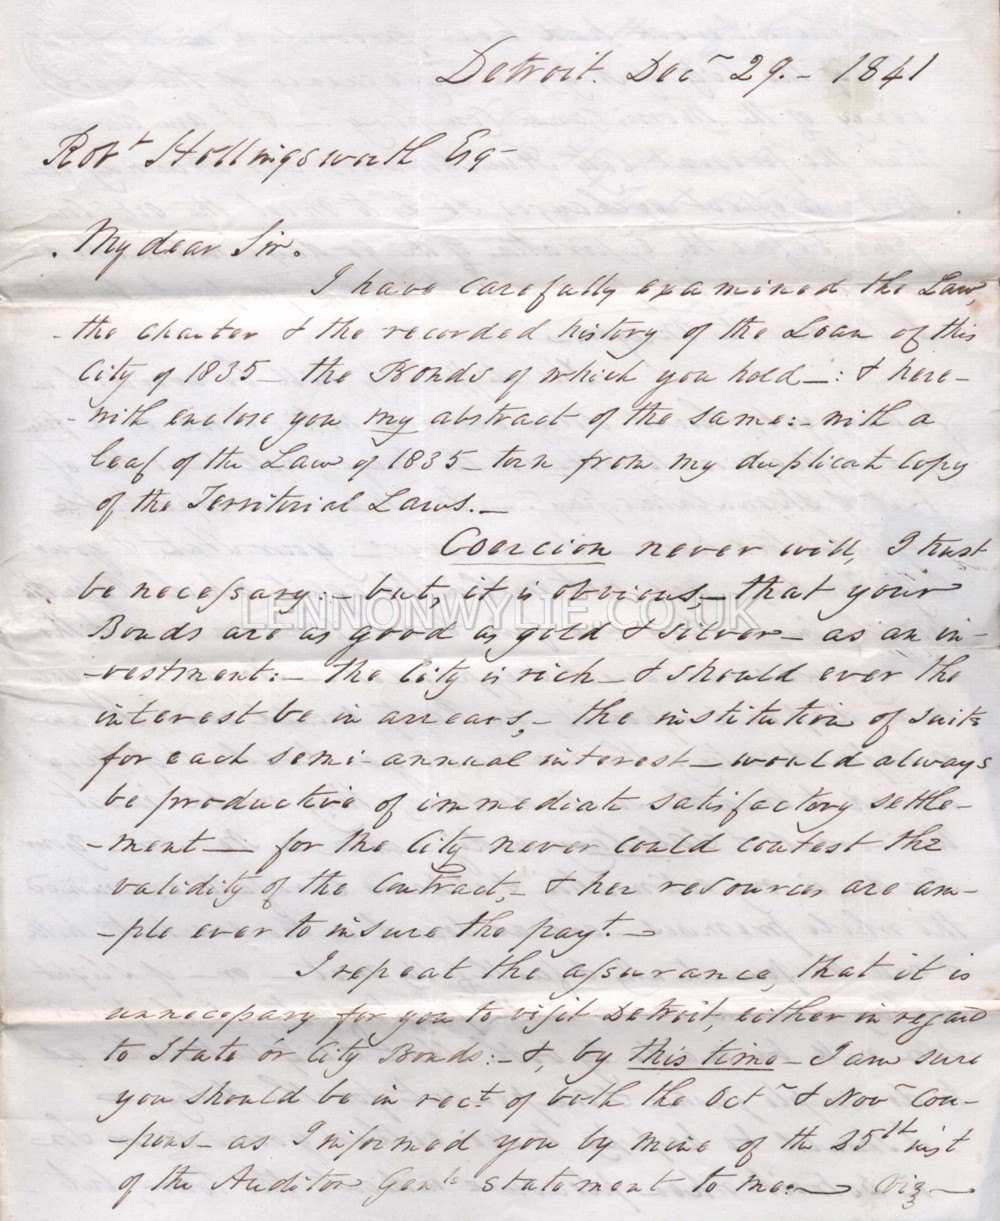 Detroit. Decr 29.- 1841
Robt Hollingsworth Esq
My dear Sir.
I have carefully examined the Law,
-the charter & the recorded history of the Loan of this
City of 1835 - the Bonds of which you hold -: & here-
-with enclose you my abstract of the same:- with a
leaf of the Law of 1835 - torn from my duplicate copy
of the Territorial Laws. -
Coercion never will, I trust
be necessary:- but, it is obvious - that your
LENNONWYLIE.CO.UK
Bonds are as good as gold & silver - as an in-
-vestment:- the City is rich - & should ever the
interest be in arrears, - the institution of suits
for each semi-annual interest - would always
be productive of immediate satisfactory settle-
-ment - for the City never could contest the
validity of the Contract, - & her resources are am-
-ple ever to insure the payt. -
I repeat the assurance, that it is
unnecessary for you to visit Detroit, either in regard
to State or City Bonds:- &, by this time - I am sure
you should be in rect of both the Octr & Novr Cou-
-pons - as I informed you by mine of the 25th inst
of the Auditor Genls statement to me:- Viz -